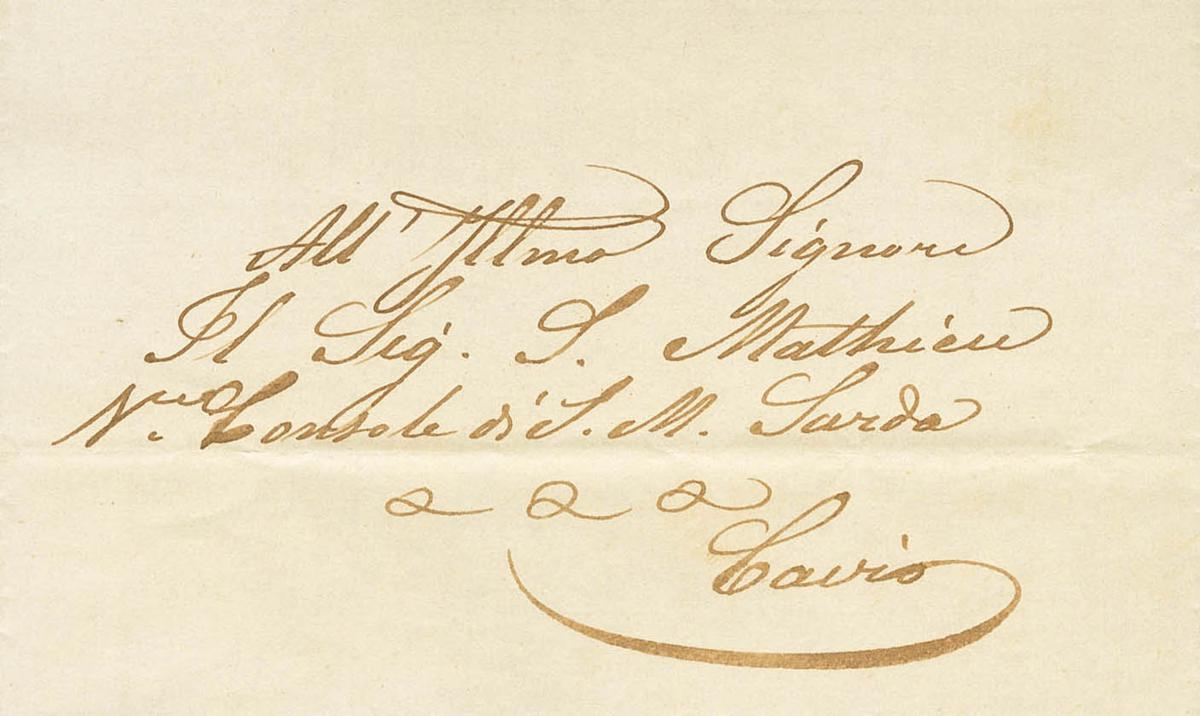 All' Illmo Signore
Il Sig. S. Mathieu
Console di S. M. Sarda
a a a
Cavio